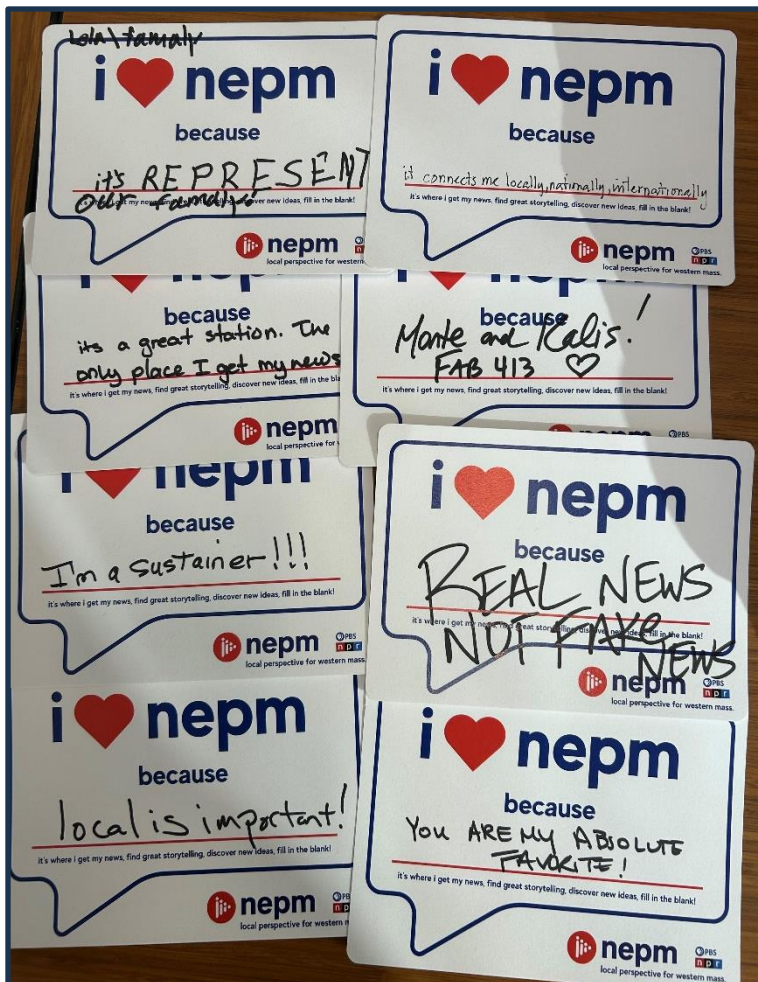 Lola\famaly
i ❤ nepm
because
it's REPRESENT
our famalys
it's where i get my news, find great storytelling, discover new ideas, fill in the blank!
nepm
local perspective for western
i ❤ nepm
because
it connects me locally, nationally, internationally
it's where i get my news, find great storytelling, discover new ideas, fill in the blank!
nepm PBS
npr
local perspective for western mass.
because
its a great station. The
only place I get my news
it's where i get my news, find great storytelling, discover new ideas, fill in the bla
nepm
local perspective for
because
Monte and Kalis!
FAB 413 ♡
it's where i get my news, find great storytelling, discover new ideas, fill in the blank!
PBS
i ❤ nepm
because
I'm a sustainer!!!
it's where i get my news, find great storytelling, discover new ideas, fill in the blank!
nepm PBS
npr
local perspective for western mass.
i ❤ nepm
because
REAL NEWS
it's where i get my news, find great storytelling, discover new ideas, fill in the blank!
NOT FAKE
NEWS
nepm PBS
npr
local perspective for western mass.
i ❤ nepm
because
local is important!
it's where i get my news, find great storytelling, discover new ideas, fill in the blank!
nepm
local perspective for western m
i ❤ nepm
because
YOU ARE MY ABSOLUTE
FAVORITE!
it's where i get my news, find great storytelling, discover new ideas, fill in the blank!
nepm PBS
npr
local perspective for western mass.